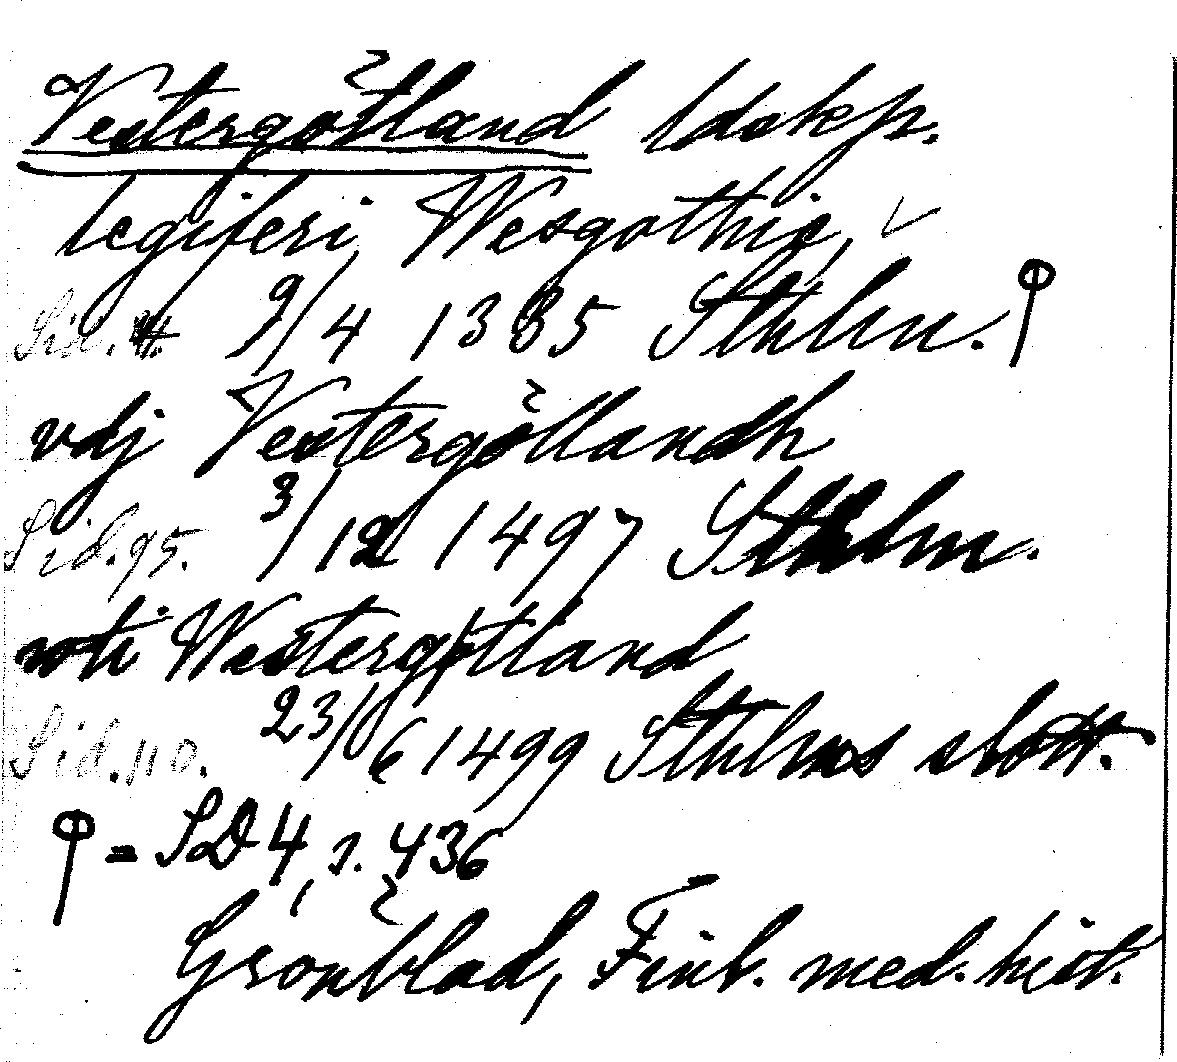 Vestergötland ldskp.
legiferi Wesgothie,
Sid. 4. 9/4 1335 Sthlm.
vdj Vestergöllandh
Sid. 95. 3/12 1497 Sthlm.
voti Westergøtland
Sid. 110. 23/6 1499 Sthlms slott.
= SD 4, s. 436
Grönblad, Finl. med. hist.